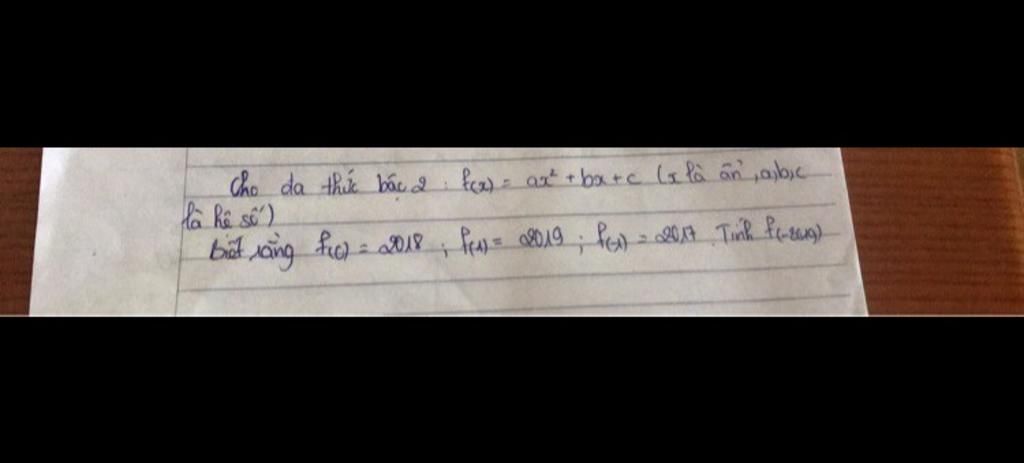 Cho da thức bậc 2 : f(x) = ax² + bx + c (x là ẩn, a,b,c
là hệ số)
biết rằng f(0) = 2018 ; f(1) = 2019 ; f(-1) = 2017. Tính f(-2019)